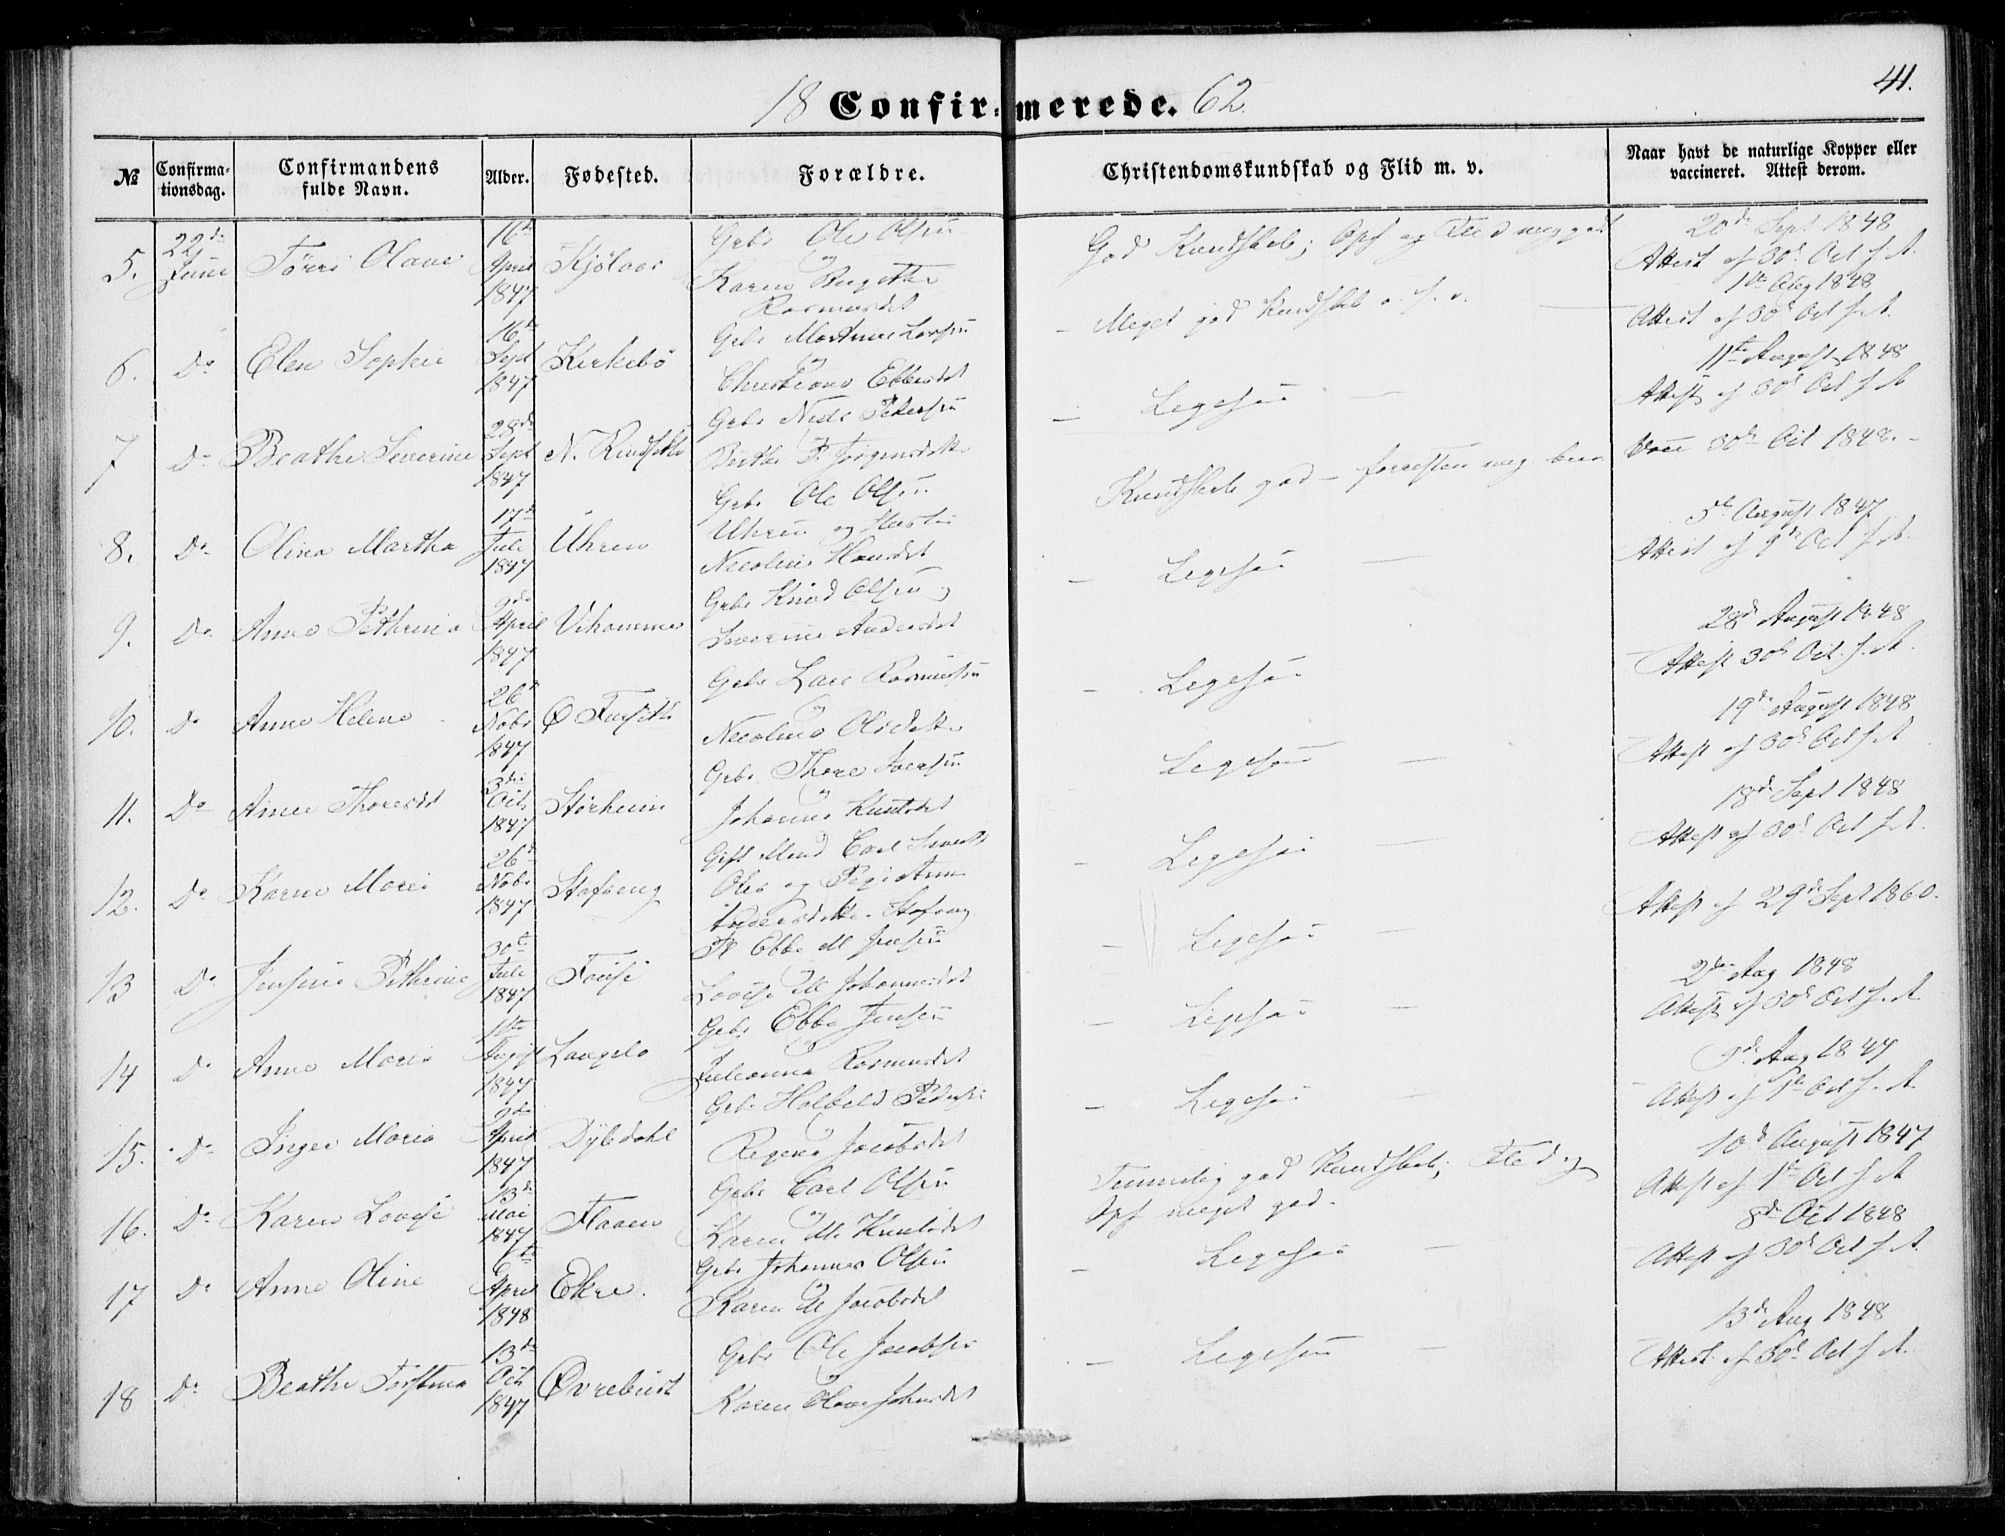 41.
18 Confirmerede. 62.
№
Confirmationsdag.
Confirmandens fulde Navn.
Alder.
Fødested.
Forældre.
Christendomskundskab og Flid m. v.
Naar havt de naturlige Kopper eller vaccineret. Attest derom.
5. 22de Juni Olave 16de April 1847 Gbr Ole Olsen
og Karen Rasmusdt
God Kundskab; Opf og Flid meg god
20de Sept 1848
Attest af 30d Oct s. A.
6. Do Elen Sophie 16de Sept 1847 Kirkebø Gbr Larsen
og Ebbesdt
Meget god Kundskab o. s. v.
1ste Aug 1848
Attest af 30d Oct s. A.
7 Do Beathe Severine 28de Sept 1847 N. Gbr Niels Pedersen
og Berthe P. Jørgensdtr
Ligesaa
11te August 1848
Attest af 30d Oct s A
8. Do Olina Martha 17de Juli 1847 Uhren Gbr Ole Olsen
Uhren og Hustru
Nicoline Hansdt
Kundskab god – forresten meg bra
Vacc 30d Oct 1848.
9. Do Anne Pethrina 2de April 1847 Gbr Knud Olsen og
Andersdt
Ligesaa
5te August 1847
Attest af 9de Oct s. A.
10. Do Anne Helene 26de Nobr 1847 Gbr Lars Rasmussen
og Nicoline Olsdtr
Ligesaa
28d August 1848
Attest 30d Oct. s. A.
11. Do Anne Thoresdt 3die Octb 1847 Størheim Gbr Thore
og Johanne Knutsdt
Ligesaa
19d August 1848
Attest af 30d Oct s A
12. Do Karen Marie 26d Nobr 1847 Stafseng Gift Mand Carl
Ole og Pige Anne
Stafseng
Ligesaa
18d Sept 1848
Attest af 30d Oct s. A.
13 Do Jensine Pethrine 30te Juli 1847 Ebbe M Jensen
Lovise M Johannesdt
Ligesaa
Attest af 29d Sept 1860.
14 Do Anne Marie 1ste August 1847 Langelo Gbr Ebbe Jensen
og Julianna Rasmusdt
Ligesaa
2den Aug 1848
Attest af 30d Oct s. A
15. Do Inger Maria 2de April 1847 Gbr Pedersen
og Regina Jacobsdt
Ligesaa
Aug 1847
Attest af Oct s. A.
16. Do Karen Lovise 13de Mai 1847 Flaaen Gbr Carl Olsen
og Karen M. Knutsdt
Temmelig god Kundskab; Flid og
Opf meget god.
10d August 1847
Attest af 1ste Oct s A
17 Do Anne Oline April 1848 Ekre. Gbr Johannes Olsen
og Karen M Jacobsdt
Ligesaa
8de Oct 1848
Attest af 30d Oct s. A.
18 Do Beathe 13de Octb 1847 Øvrebust Gbr Ole Jacobsen
og Karen Olave Johnsdt
Ligesaa
13d Aug 1848
Attest af 30d Oct s. A.